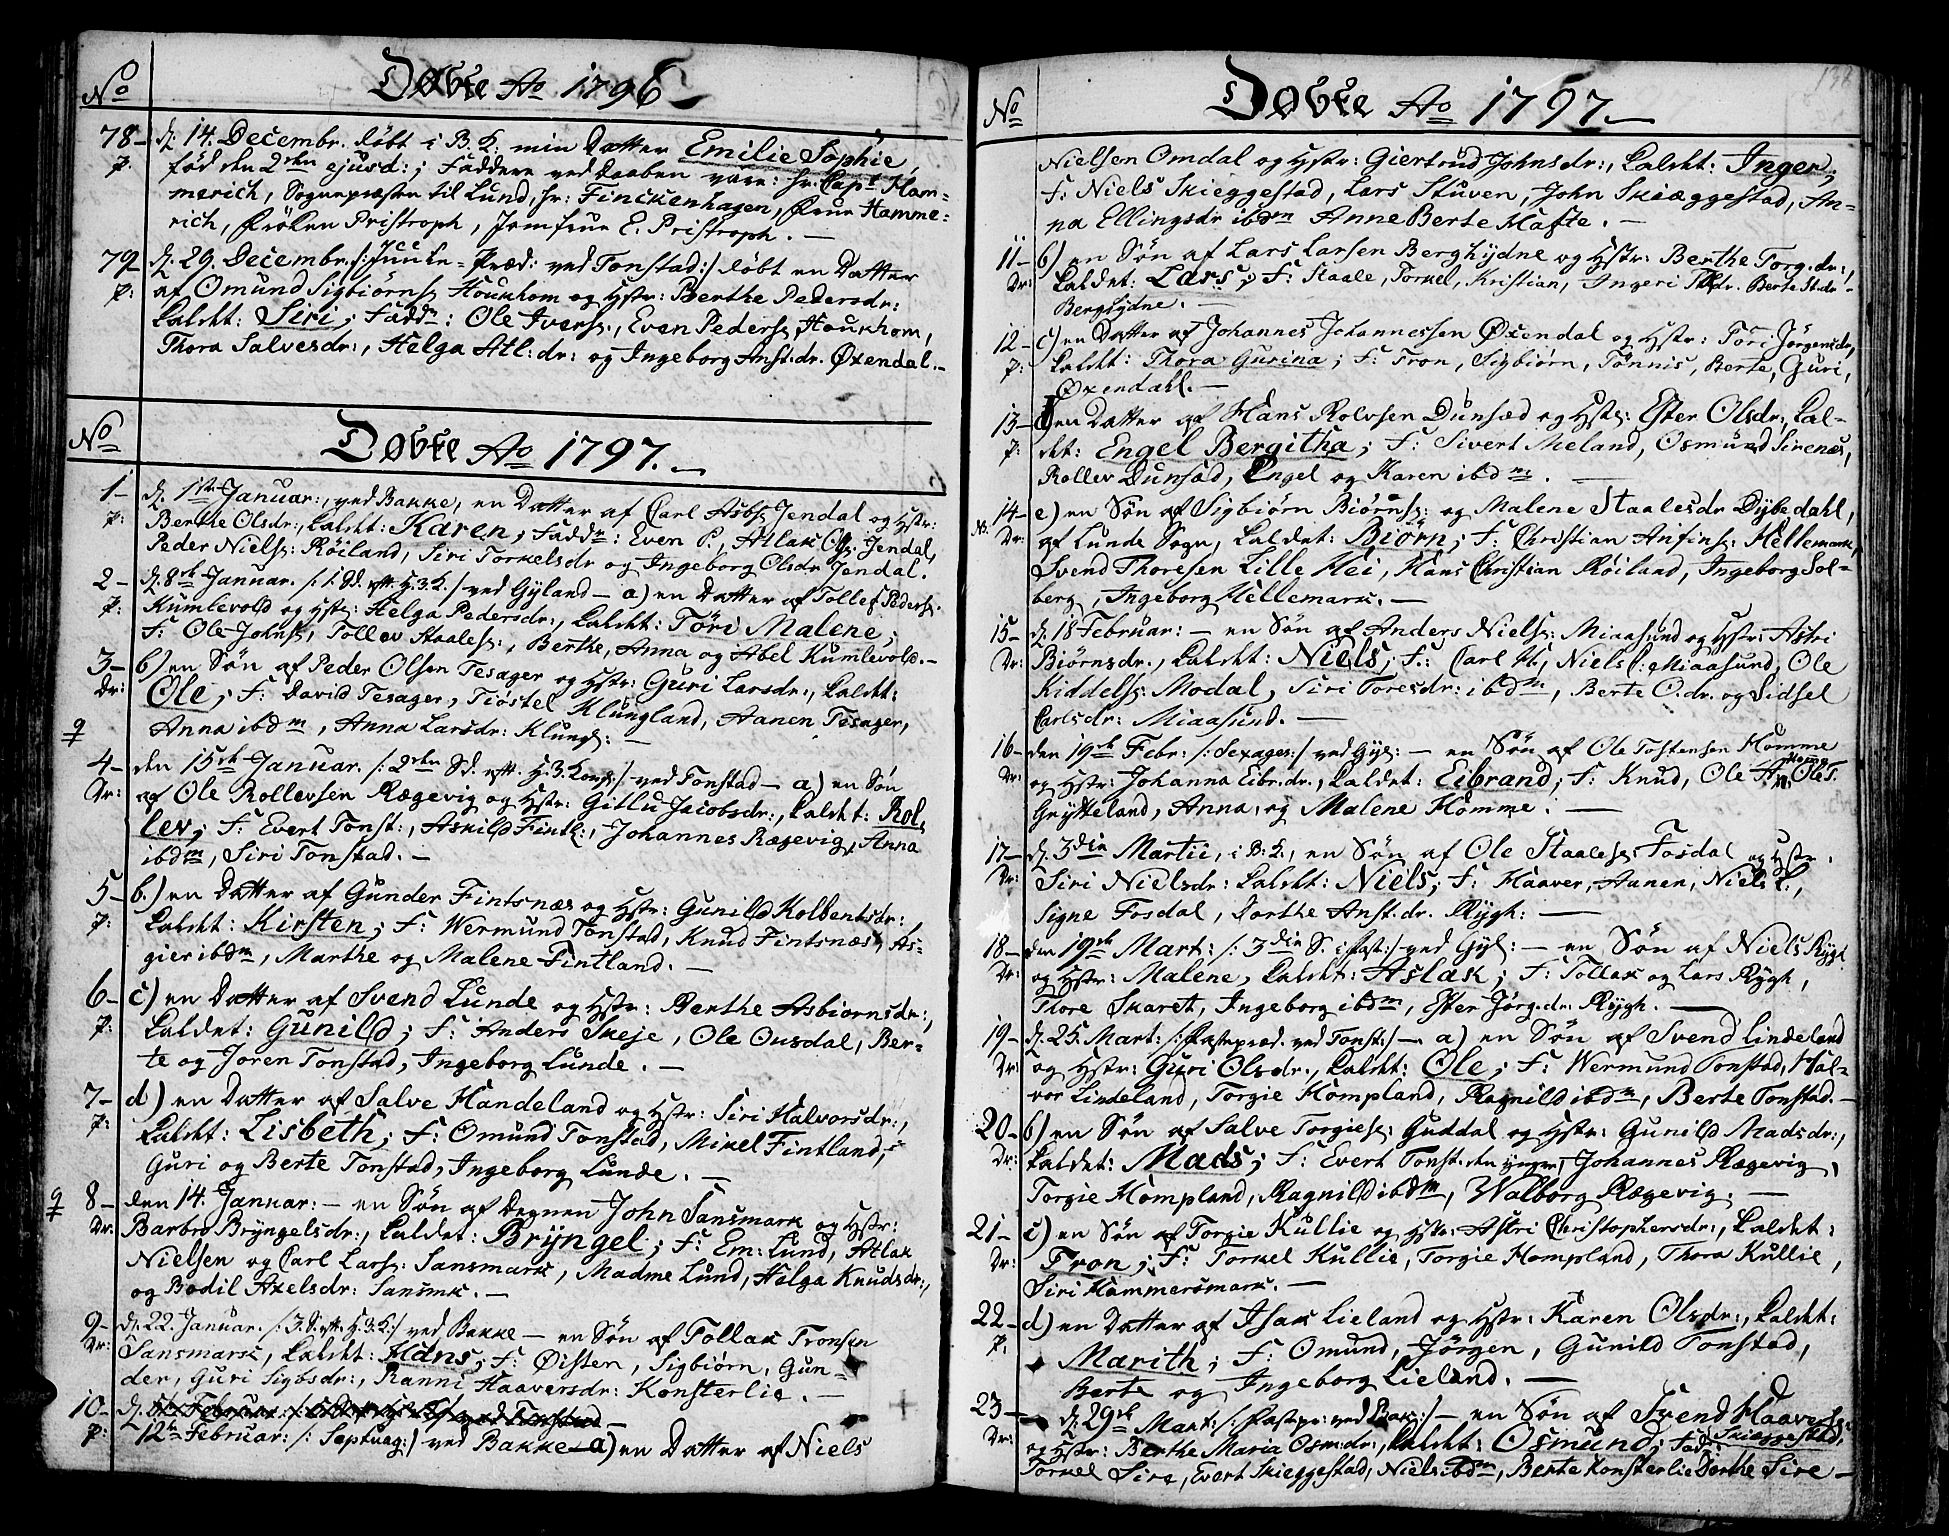 No Døbte Ao 1796
78 d. 14. Decembr. døbt i B. K. min Datter Emilie Sophie,
p. fød den 2den ejusd:; Faddere ved Daaben vare: hr. Capt. Ham-
merich, Sognepræsten til Lund, hr: Finckenhagen, Frue Hamme-
rich, Frøken Pristroph, Jomfrue E. Pristroph. —
79 d. 29. Decembr. /: Juule-Præd: ved Tonstad :/ døbt en Datter
p: af Omund Sigbiørns: Houkhom og Hstr: Berthe Pedersdr:
kaldet: Siri; Fadd: Ole Ivers:, Even Peders: Houkhom,
Thora Salvesdr:, Helga Atl:dr: og Ingeborg Anst:dr. Øxendal. —
No Døbte Ao 1797. —
1 — d. 1ste Januar:, ved Bakke, en Datter af Carl Asbs: Jendal og Hstr:
p: Berthe Olsdr:, kaldet: Karen; Fadd: Even P., Atlak Ols: Jendal,
Peder Niels: Røiland, Siri Torkelsdr og Ingeborg Olsdr Jendal.
2 — d. 8de Januar. /: 1. Sd. eft. H. 3. K. :/ ved Gyland — a) en Datter af Tollef Peders:
p: Kumlevold og Hstr: Helga Pedersdr:, kaldet: Tøri Malene;
F: Ole Johns:, Tollev Staales:, Berthe, Anna og Abel Kumlevold. —
3 — b) en Søn af Peder Olsen Tesager og Hstr: Guri Larsdr:, kaldet:
Dr: Ole; F: David Tesager, Tiøstel Klungland, Aanen Tesager,
Anna ibdm, Anna Larsdr: Klungl: —
4 — den 15de Januar. /: 2den Sd. eft. H. 3. Kong: :/ ved Tonstad — a) en Søn
Dr: af Ole Rollevsen Rægevig og Hstr: Gitlu Jacobsdr:, kaldet: Rol-
lev; F: Evert Tonst:, Askild Fintl:, Johannes Rægevig, Anna
ibdm, Siri Tonstad. —
5 — b.) en Datter af Gunder Fintsnæs og Hstr: Gunild Kolbentsdr:,
p: kaldet: Kirsten; F: Wermund Tonstad, Knud Fintsnæs, As-
gier ibdm, Marthe og Malene Fintland. —
6 — c) en Datter af Svend Lunde og Hstr: Berthe Asbiørnsdr:,
p: kaldet: Gunild; F: Anders Skeje, Ole Ousdal, Ber-
te og Joren Tonstad, Ingeborg Lunde. —
7 — d) en Datter af Salve Handeland og Hstr: Siri Halvorsdr:,
p: kaldet: Lisbeth; F: Omund Tonstad, Mikel Fintland,
Guri og Berte Tonstad, Ingeborg Lunde. —
8 — den 14. Januar: — en Søn af Degnen John Sansmark og Hstr:
Dr: Barbro Bryngelsdr:, kaldet: Bryngel; F: Em: Lund, Atlak
Nielsen og Carl Lars: Sansmark, Madme Lund, Helga Knudsdr:,
og Bodil Axelsdr: Sansmk. —
9 — d. 22. Januar. /: 3. S. eft. H. 3. K. :/ ved Bakke — en Søn af Tollak Tronsen
Dr: Sansmark, kaldet: Hans; F: Øisten, Sigbiørn, Gun-
der, Guri Sigbsdr:, Ranni Haaversdr: Konsterlie. —
10 — d.
p: 12te Februar: /: Septuag: :/ ved Bakke — a) en Datter af Niels
No Døbte Ao 1797. —
Nielsen Omdal og Hstr: Giertrud Johnsdr:, kaldet: Inger;
F: Niels Skieggestad, Lars Stuven, John Skiæggestad, An-
na Ellingsdr ibdm Anne Berte Hafte. —
11 — b) en Søn af Lars Larsen Berghydne og Hstr: Berthe Torg:dr:,
Dr: kaldet: Lars; F: Staale, Torkel, Kristian, Ingeri dr. Berte St:dr —
Berghydne. —
12 — c) en Datter af Johannes Johannessen Øxendal og Hstr: Tori Jørgensdr,
p: kaldet: Thora Gurina; F: Tron, Sigbiørn, Tønnis, Berte, Guri,
Øxendahl. —
13 — d) en Datter af Hans Rolvsen Dunsæd og Hstr: Ester Olsdr:, kal-
p: det: Engel Bergitha; F: Sivert Meland, Osmund Sirenæs,
Rollev Dunsæd, Engel og Karen ibdm. —
14 — e) en Søn af Sigbiørn Biørns: og Malene Staalesdr Dybedahl,
NB. Dr: af Lunde Sogn, kaldet: Biørn; F: Christian Anfins: Hellemark,
Svend Thoresen Lille Hei, Hans Christian Røiland, Ingeborg Sol-
berg, Ingeborg Hellemark. —
15 — d. 18 Februar: — en Søn af Anders Niels: Miaasund og Hstr: Astri
Dr: Biørnsdr:, kaldet: Niels; F: Carl N:, Niels C: Miaasund, Ole
Kiddels: Modal, Siri Toresdr: ibdm, Berte O:dr. og Sidsel
Carlsdr: Miaasund. —
16 — den 19de Febr: /: Sexages: :/ ved Gyl: — en Søn af Ole Tostensen Homme
Dr: og Hstr: Johanna Eibr:dr:, kaldet: Eibrand; F: Knud, Ole Homme, Ole T.
Grytteland, Anna, og Malene Homme. —
17 — d. 3die Martii, i B. K., en Søn af Ole Staales: Fosdal og Hstr:
Dr: Siri Nielsdr: kaldet: Niels; F: Haaver, Aanen, Niels L:,
Signe Fosdal, Dorthe Anst.dr. Rygh: —
18 — den 19de Mart: /: 3die S. i Fast: :/ ved Gyl: — en Søn af Niels Rygh
Dr: og Hstr: Malene, kaldet: Aslak; F: Tollak og Lars Rygh,
Thore Skaret, Ingeborg ibdm, Ester Jørg:dr: Rygh. —
19 — d. 25. Mart: /: Fastepræd. ved Tonst: :/ — a) en Søn af Svend Lindeland
Dr: og Hstr: Guri Olsdr:, kaldet: Ole; F: Wermund Tonstad, Hal-
vor Lindeland, Torgie Hompland, Ragnild ibdm, Berte Tonstad. —
20 — b) en Søn af Salve Torgies: Guddal og Hstr: Gunild Madsdr:,
Dr: kaldet: Mads; F: Evert Tonst: den yngre, Johannes Rægevig,
Torgie Hompland, Ragnild ibdm, Walborg Rægevig. —
21 — c) en Søn af Torgie Kullie og Hstr: Astri Christophersdr:, kaldet:
Dr: Tron; F: Torkel Kullie, Torgie Hompland, Thora Kullie,
Siri Hammersmark. —
22 — d) en Datter af Isak Lieland og Hstr: Karen Olsdr:, kaldet:
p. Marith; F: Omund, Jørgen, Gunild Tonstad,
Berte og Ingeborg Lieland. —
23 — d. 29de Mart: /: Fastepr: ved Bak: :/ — en Søn af Svend Haavers:
Dr: og Hstr: Berthe Maria Osm:dr:, kaldet: Osmund; Fad: Skiæggestad,
Torkel Sire, Evert Skieggestad, Niels ibdm, Berte Konsterlie Dorthe Sire —